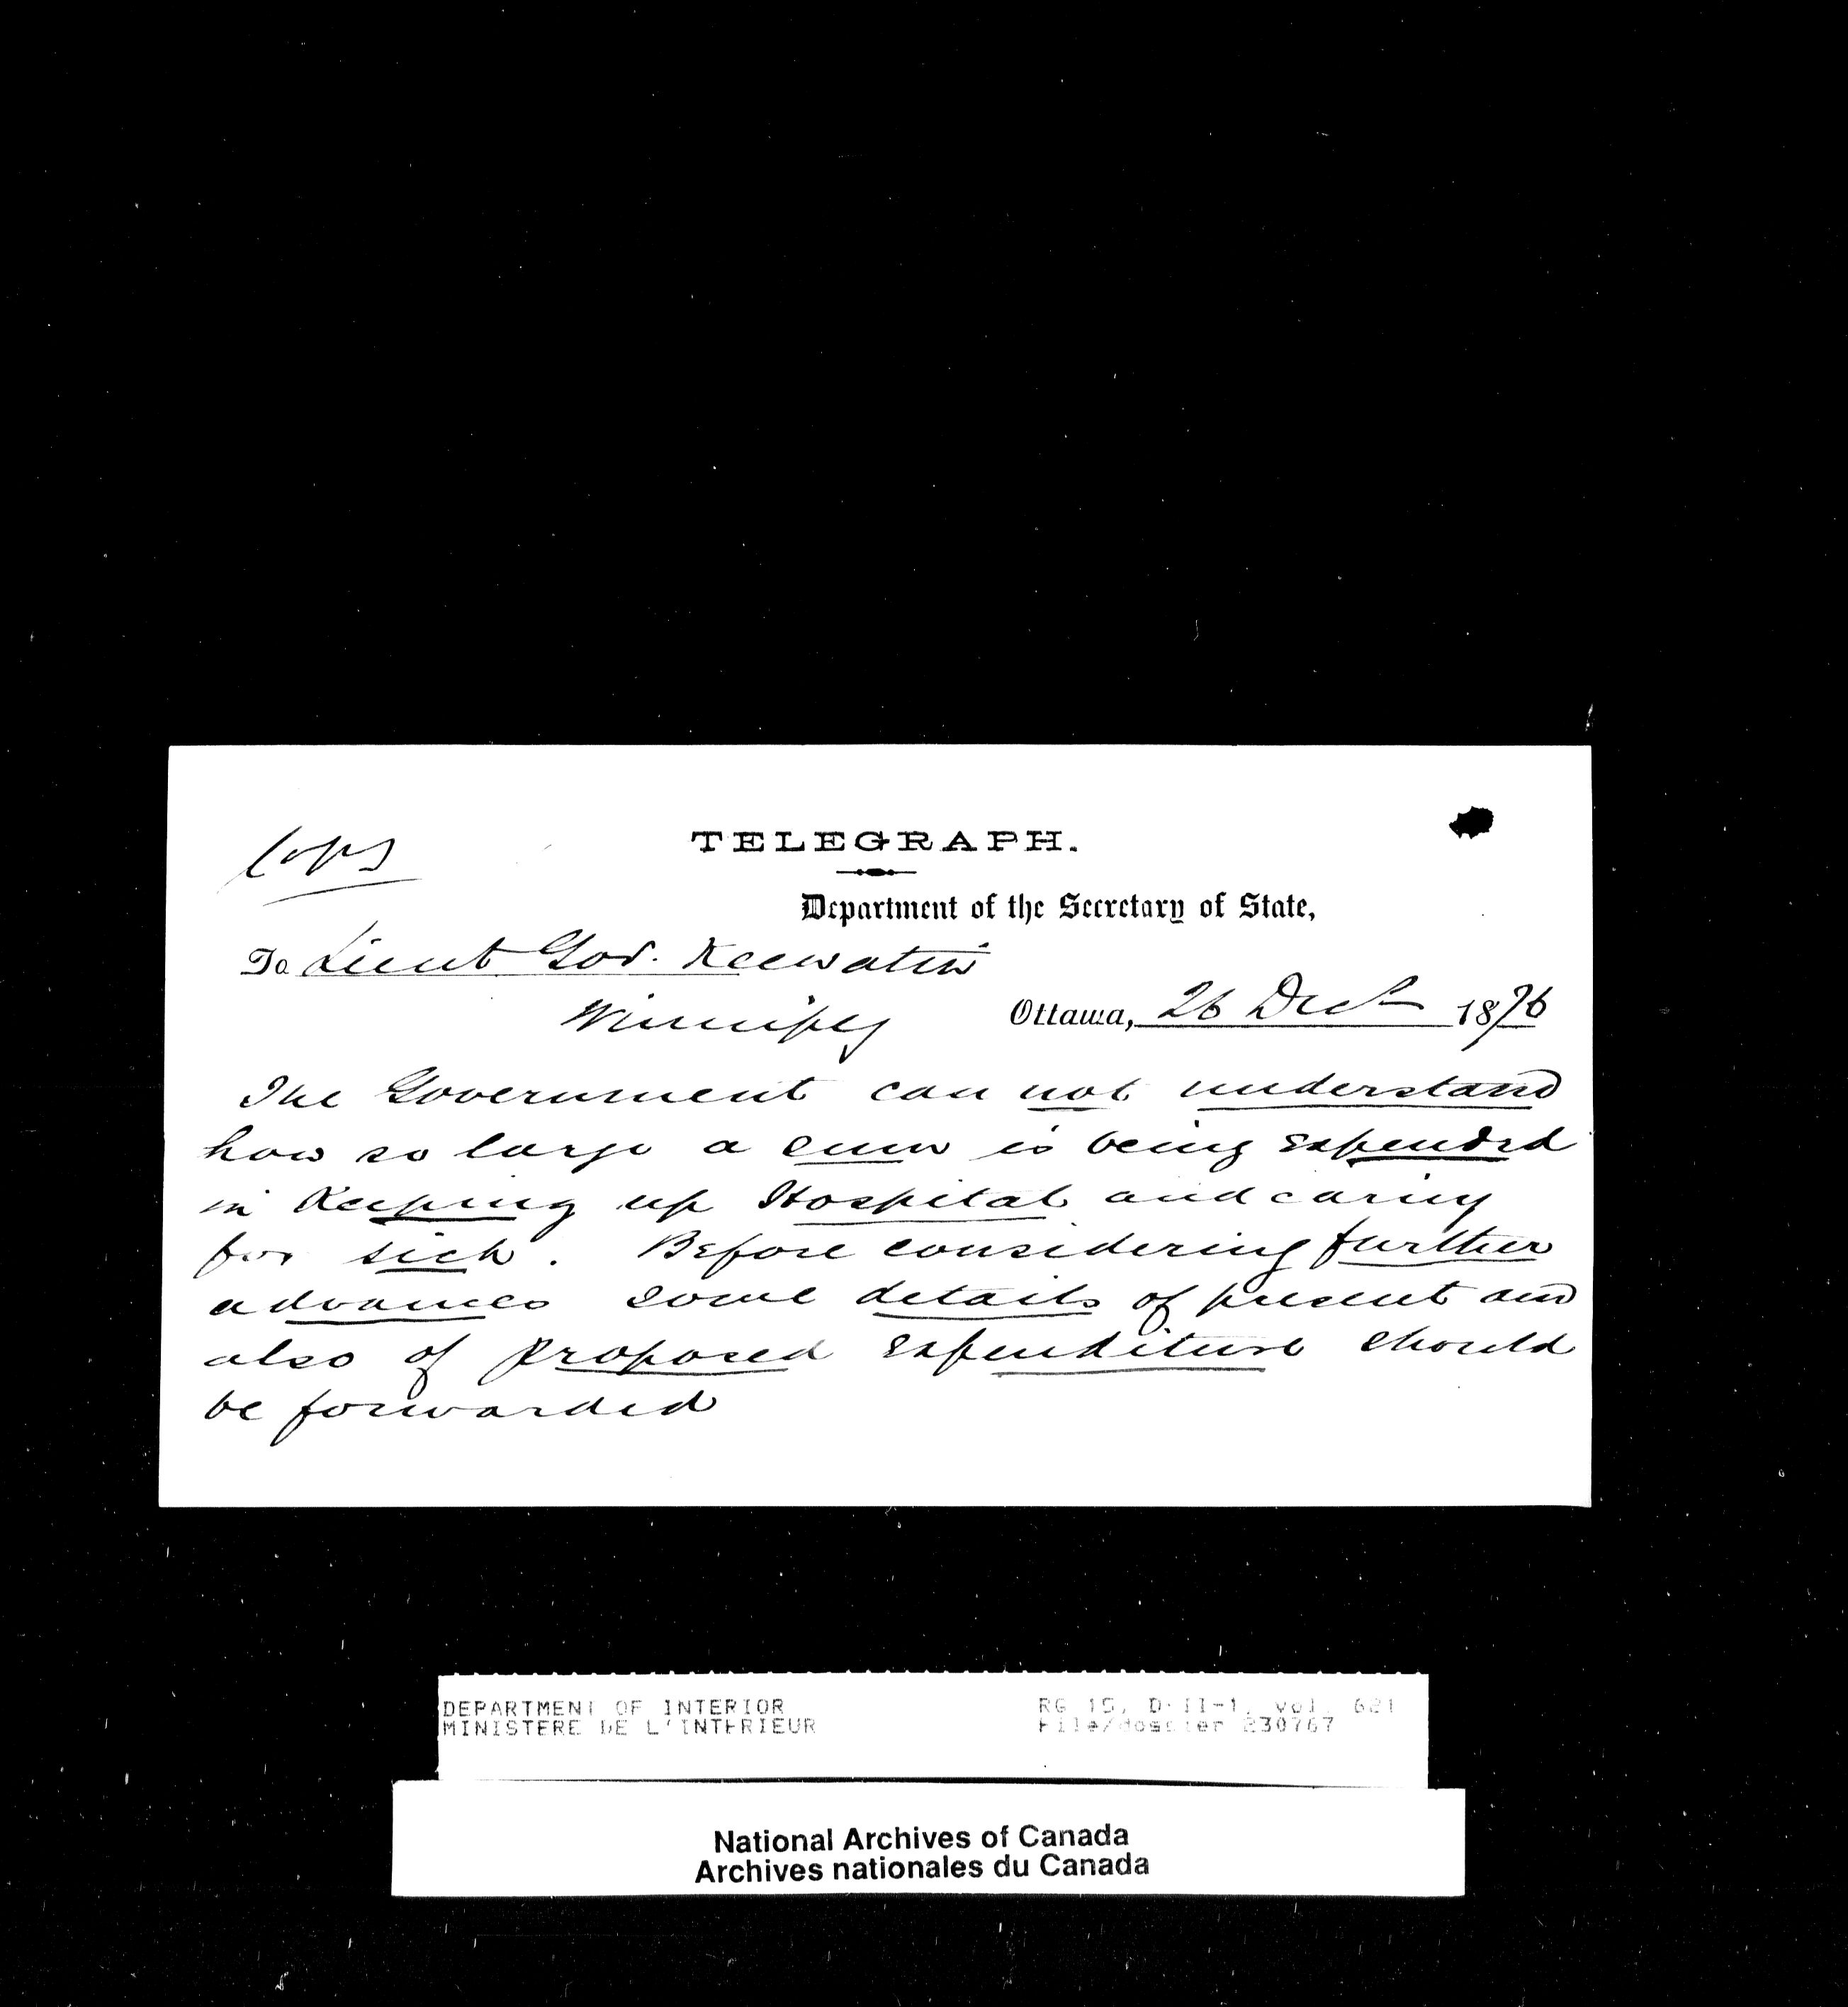 Copy
TELEGRAPH.
Department of the Secretary of State,
To Lieut Gov. Keewatin
Winnipeg
Ottawa, 26 Decr 1876
The Government can not understand
how so large a sum is being expended
in Keeping up Hospital and caring
for sick. Before considering further
advances some details of present and
also of proposed expenditure should
be forwarded
DEPARTMENT OF INTERIOR
MINISTERE DE L'INTERIEUR
RG 15, D-II-1, vol. 621
File/dossier 230767
National Archives of Canada
Archives nationales du Canada